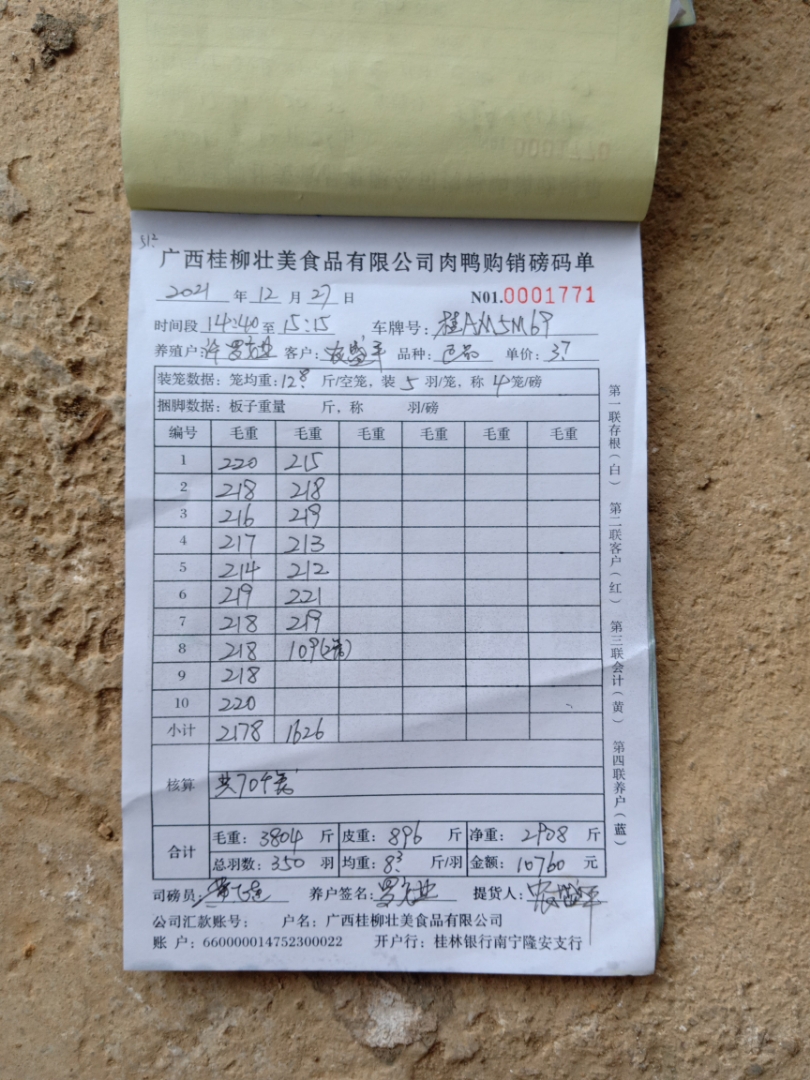 51²
广西桂柳壮美食品有限公司肉鸭购销磅码单
2021年12月27日 N01.0001771
时间段14:40至15:15 车牌号:桂AM5M69
养殖户: 客户:农盛平 品种: 单价:3⁷
装笼数据:笼均重:12⁸斤/空笼,装5羽/笼,称4笼/磅
捆脚数据:板子重量 斤,称 羽/磅
编号 毛重 毛重 毛重 毛重 毛重 毛重
1 220 215
2 218 218
3 216 219
4 217 213
5 214 212
6 219 221
7 218 219
8 218 109(2笼)
9 218
10 220
小计 2178 1626
核算 共70个笼
合计 毛重:3804斤 皮重:896斤 净重:2908斤
总羽数:350羽 均重:8³斤/羽 金额:10760元
司磅员: 养户签名: 提货人:农盛平
公司汇款账号: 户名:广西桂柳壮美食品有限公司
账 户:660000014752300022 开户行:桂林银行南宁隆安支行
第一联存根(白) 第二联客户(红) 第三联会计(黄) 第四联养户(蓝)